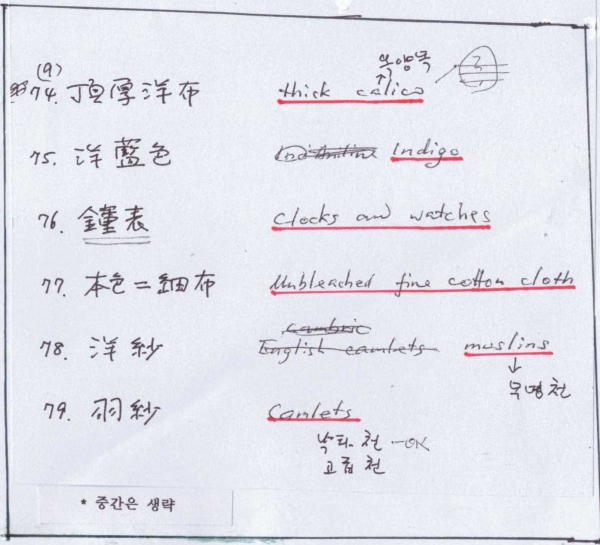 (9) 옥양목
74. 頂厚洋布 thick calico
75. 洋藍色 Indigo
76. 鐘表 Clocks and watches
77. 本色=細布 Unbleached fine cotton cloth
cambric
78. 洋紗 English camlets muslins
무명천
79. 羽紗 Camlets
낙타천 -OK
고급천
* 중간은 생략